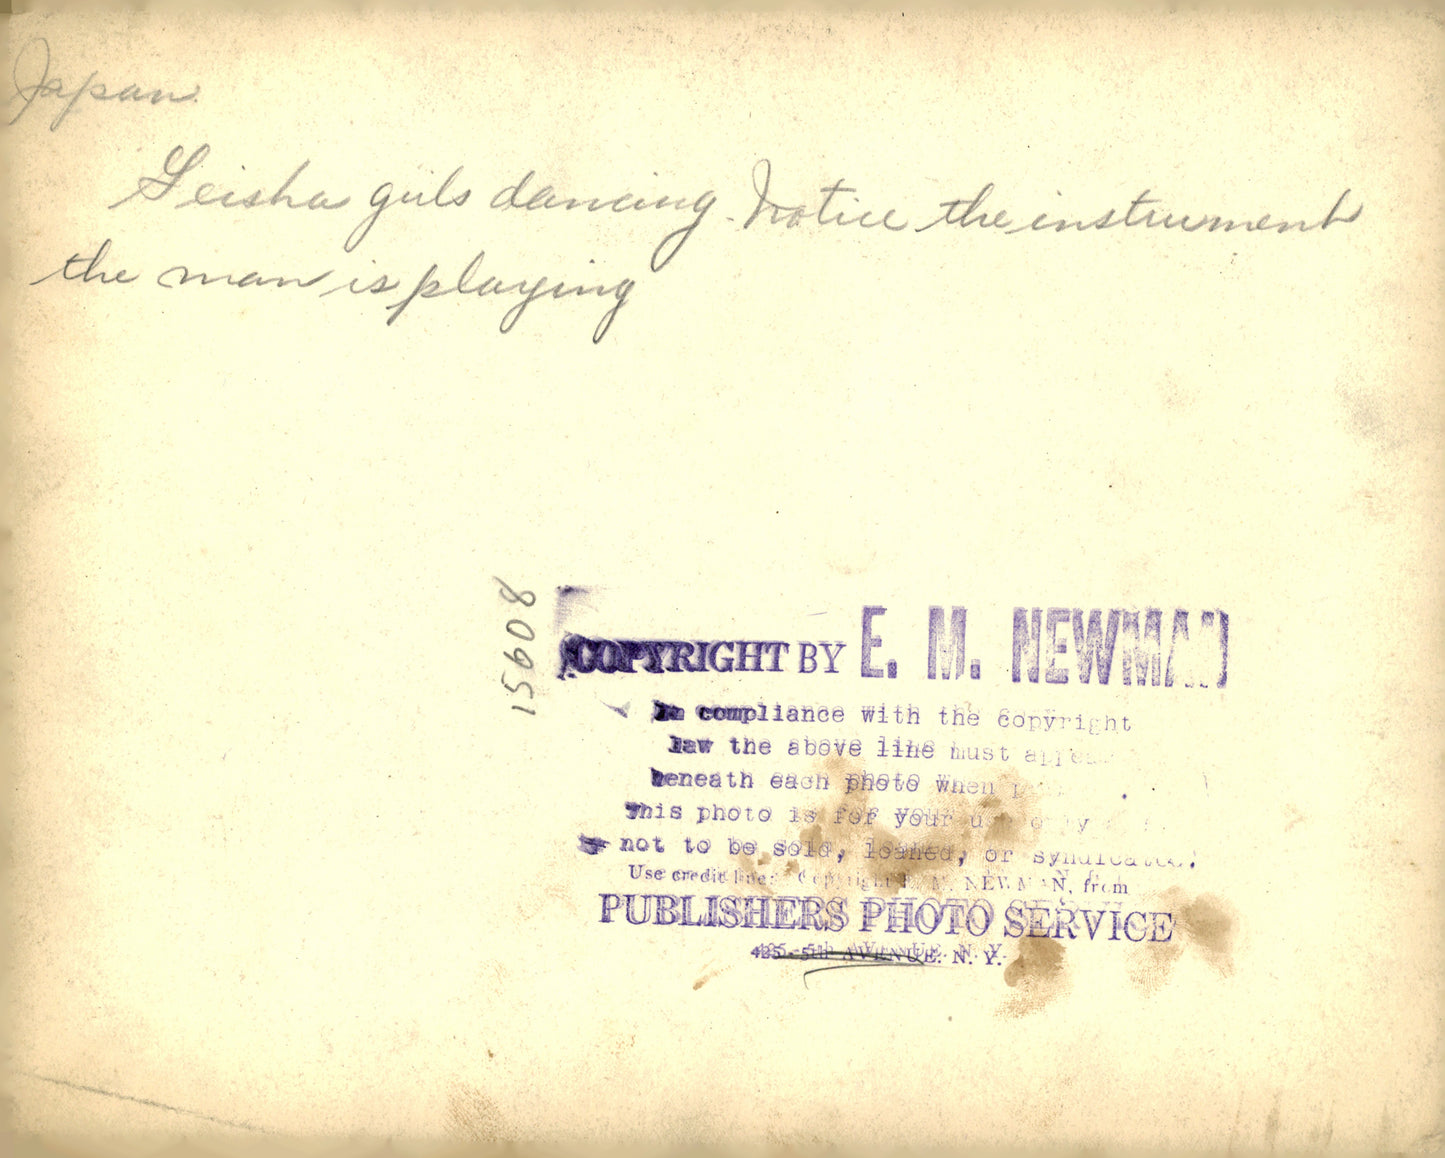 Japan.
Geisha girls dancing. Notice the instrument
the man is playing
15608
COPYRIGHT BY E. M. NEWMAN
In compliance with the copyright
law the above line must
beneath each photo when
This photo is for your use only
not to be sold, loaned, or syndicated.
Use credit line: Copyright E. M. NEWMAN, from
PUBLISHERS PHOTO SERVICE
AVENUE. N. Y.